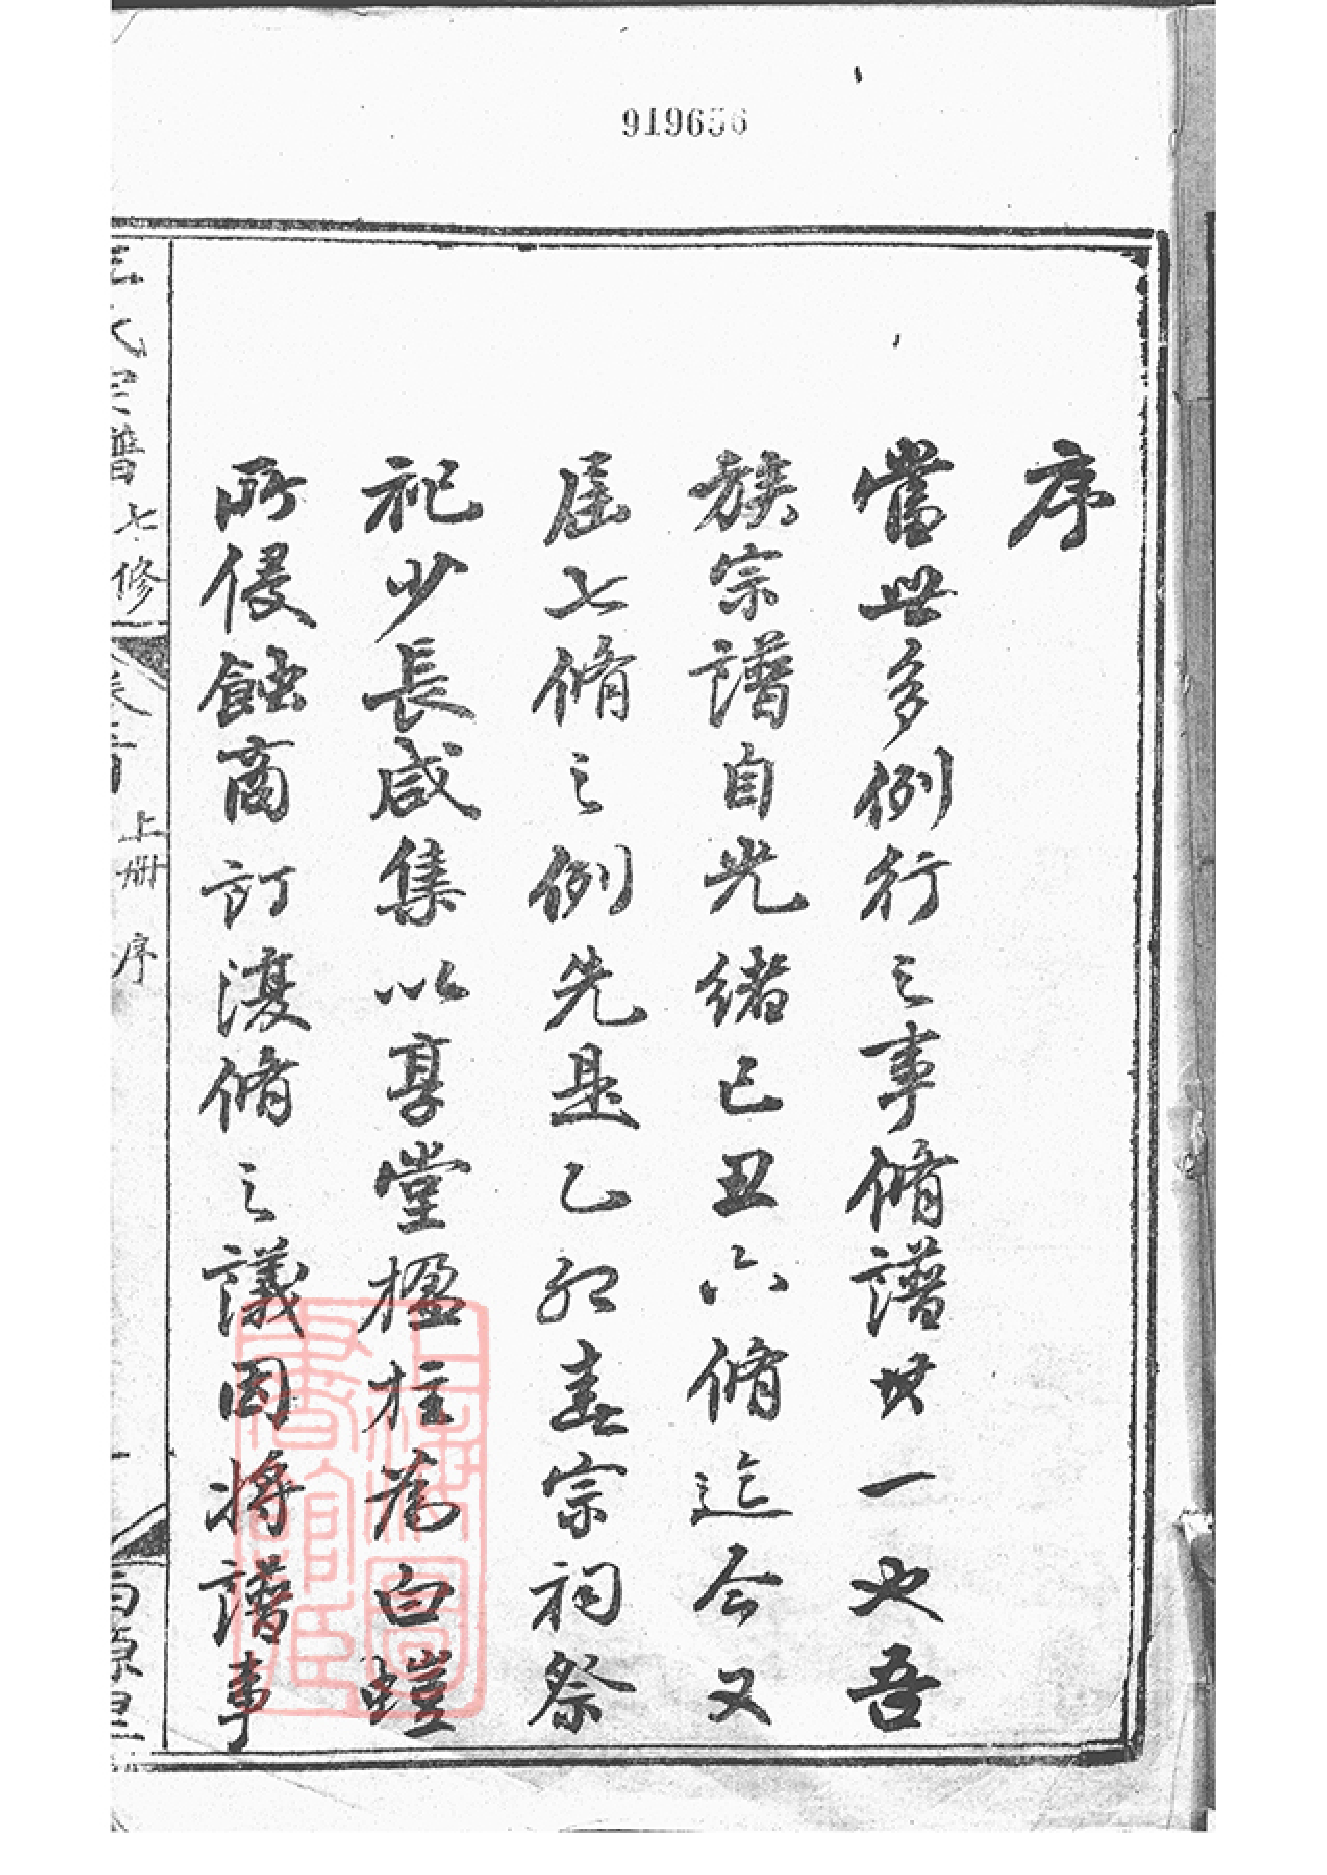 919656
序
當世多例行之事脩譜其一也吾
族宗譜自光緒己丑六脩迄今又
屆七脩之例先是乙卯春宗祠祭
祀少長咸集以享堂楹柱為白螘
所侵蝕商訂復脩之議因將譜事
氏宗譜 七修
卷首 上册 序
一
上海圖書館藏